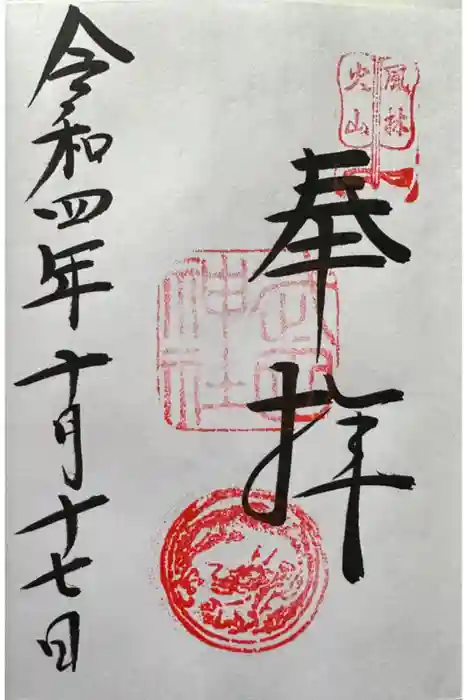 風林
火山
奉拝
神社
令和四年十月十七日